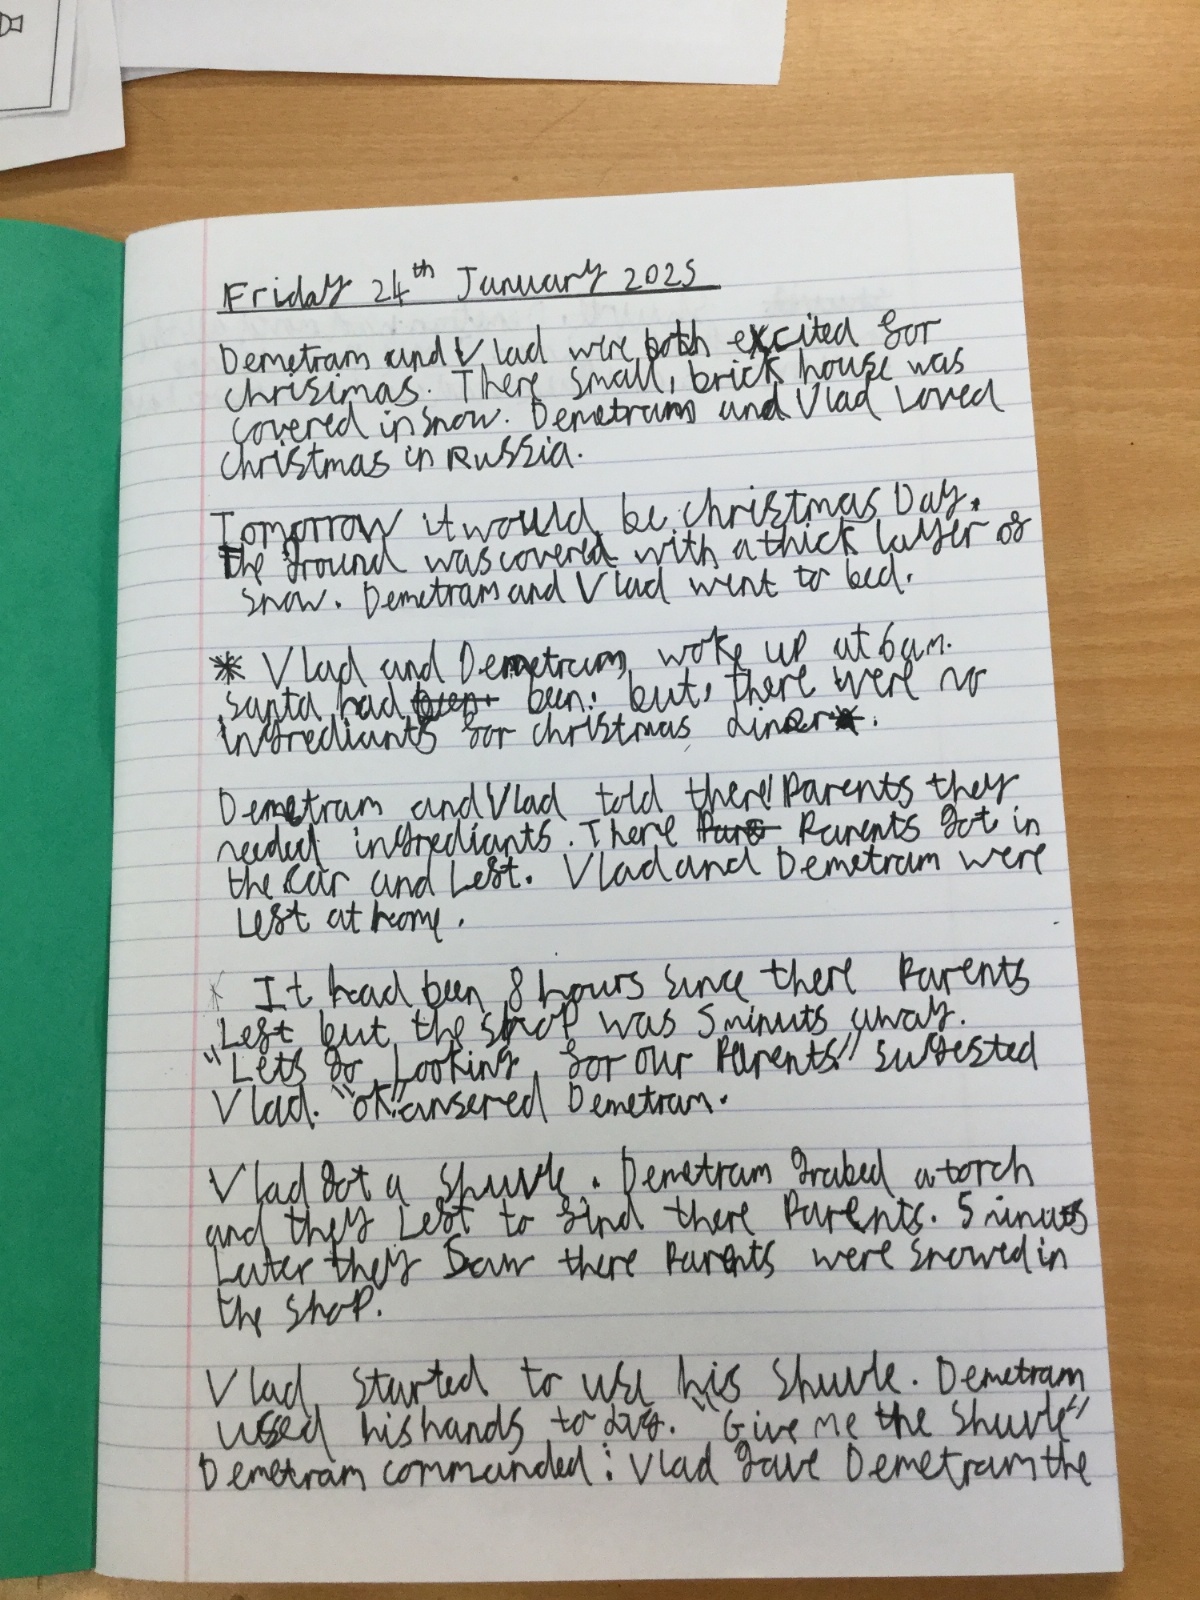 Friday 24th January 2025
Demetram and Vlad were both excited for
chrisimas. There small, brick house was
covered in snow. Demetram and Vlad Loved
christmas in Russia.
Tomorrow it would be christmas Day.
The ground was covered with a thick layer of
snow. Demetram and Vlad went to bed.
* Vlad and Demetram woke up at 6am.
Santa had been. but, there were no
ingrediants for christmas diner.
Demetram and Vlad told there Parents they
needed ingrediants. There Parents got in
the car and Left. Vlad and Demetram were
Left at home.
It had been 8 hours since there Parents
Left but the shop was 5 minuts away.
"Lets go Looking for our Parents." sugested
Vlad. "ok." ansered Demetram.
Vlad got a shuvle. Demetram grabed a torch
and they Left to find there Parents. 5 minuts
Later they Saw there Parents were snowed in
the shop.
Vlad started to use his shuvle. Demetram
used his hands to dig. "Give me the shuvle"
Demetram commanded: Vlad gave Demetram the